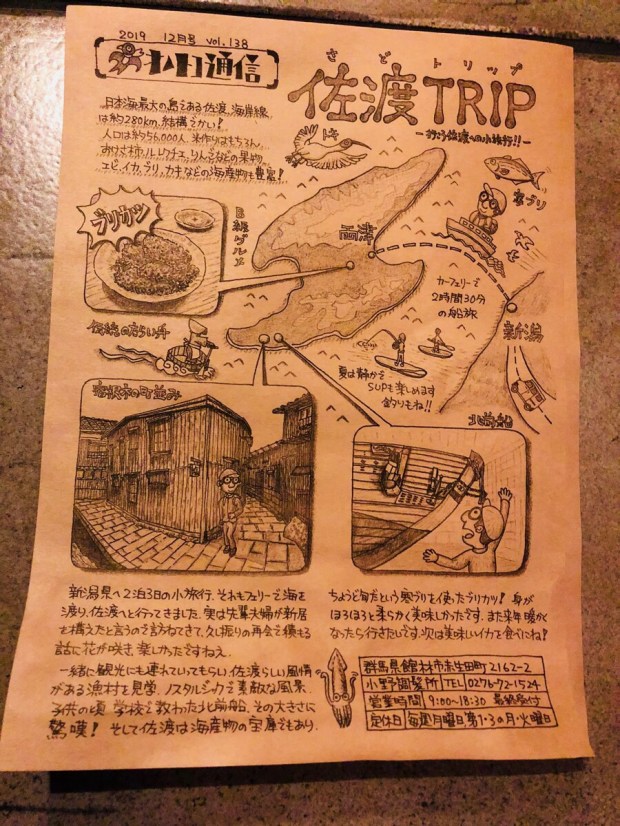 2019 12月号 vol.138
通信
さどトリップ
佐渡TRIP
日本海最大の島である佐渡、海岸線
は約280km、結構でかい!
人口は約56,000人、米作りはもちろん、
おけさ柿、ル レクチエ、りんごなどの果物、
エビ、イカ、ブリ、カキなどの海産物も豊富!
トキ
寒ブリ
ブリカツ
B級グルメ
両津
カーフェリーで
2時間30分
の船旅
新潟
伝統のたらい舟
夏は静かな
SUPも楽しめます
釣りもね!!
宿根木の町並み
北前船
新潟県へ2泊3日の小旅行、それもフェリーで海を
渡り、佐渡へと行ってきました。実は先輩夫婦が新居
を構えたと言うので訪ねてきて、久し振りの再会で積もる
話に花が咲き、楽しかったですねえ。
一緒に観光にも連れていってもらい、佐渡らしい風情
がある漁村を見学、ノスタルジックで素敵な風景。
子供の頃、学校で教わった北前船、その大きさに
驚嘆! そして佐渡は海産物の宝庫でもあり、
ちょうど旬だという寒ブリを使ったブリカツ! 身が
ほろほろと柔らかく美味しかったです。また来年暖かく
なったら行きたいです。次は美味しいイカを食べにね!
群馬県館林市赤生田町2162-2
小野調髪所 TEL 0276-72-1524
営業時間 9:00~18:30 最終受付
定休日 毎週月曜日 第1・3の月・火曜日